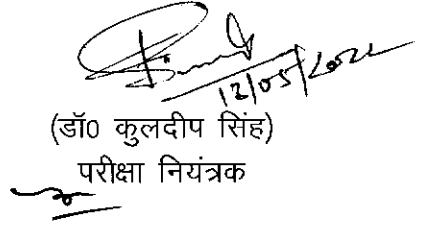 12/05/2022
(डॉ0 कुलदीप सिंह)
परीक्षा नियंत्रक